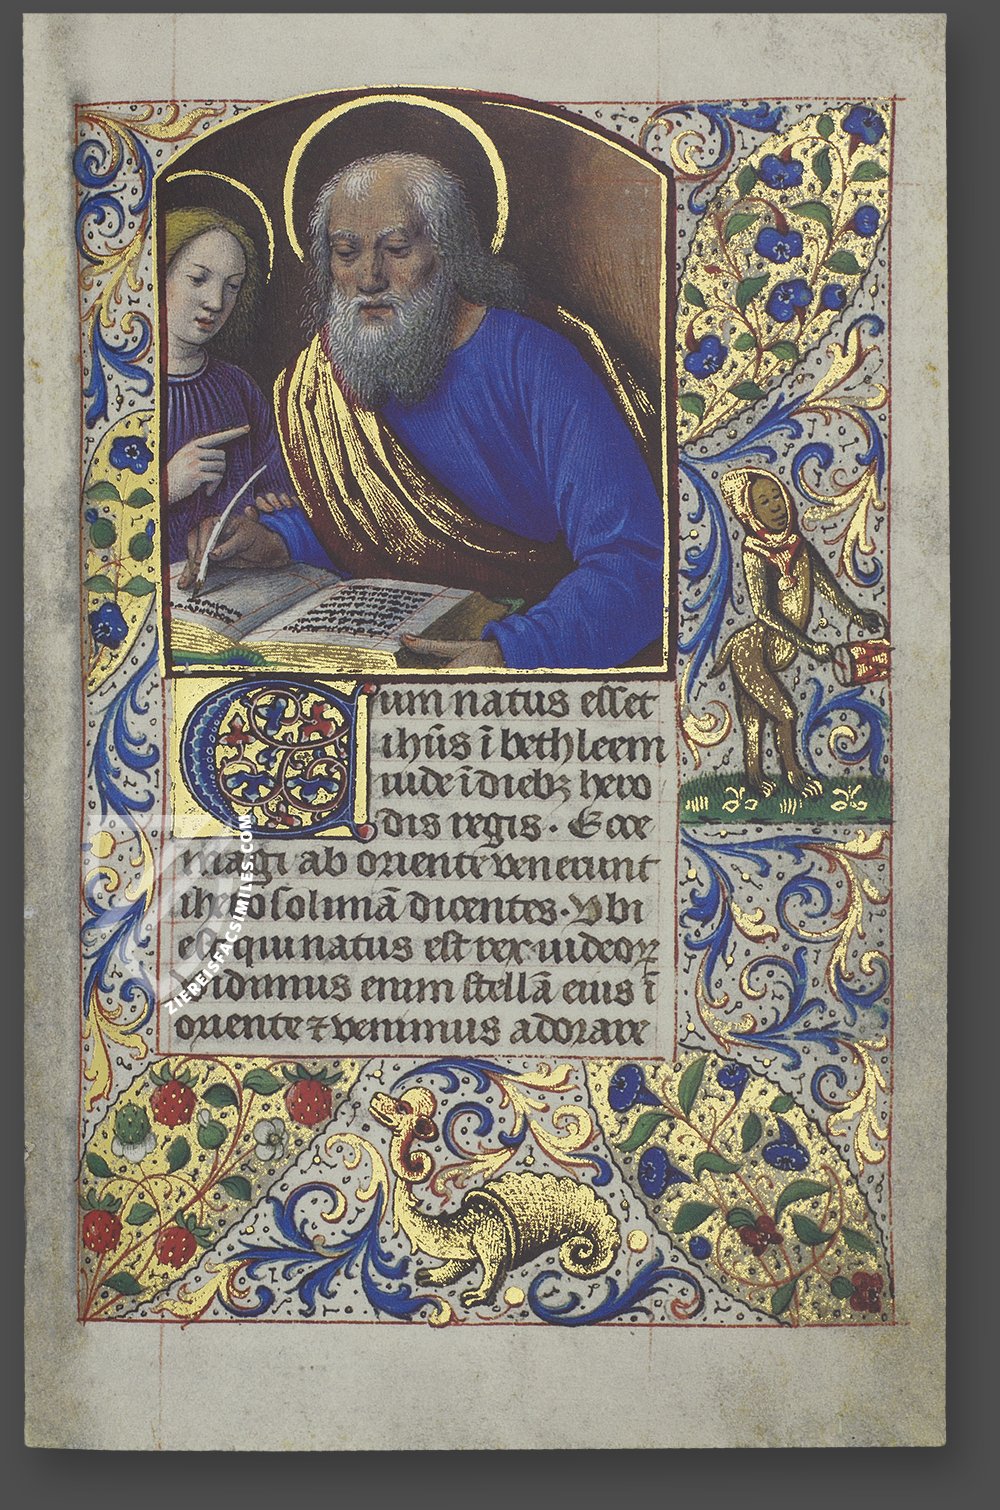 Cum natus esset
ihūs ī bethleem
iude ī diebꝫ hero
dis regis. Ecce
magi ab oriente venerunt
iherosolimā dicentes. Vbi
est qui natus est rex iudeoꝝ
vidimus enim stellā eius ī
oriente ⁊ venimus adorare
ZIEREISFACSIMILES.COM